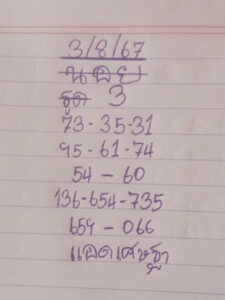 3/8/67
นอย
รูด 3
73-35-31
95-61-74
54-60
136-654-735
659-066
แอดเศษฐา